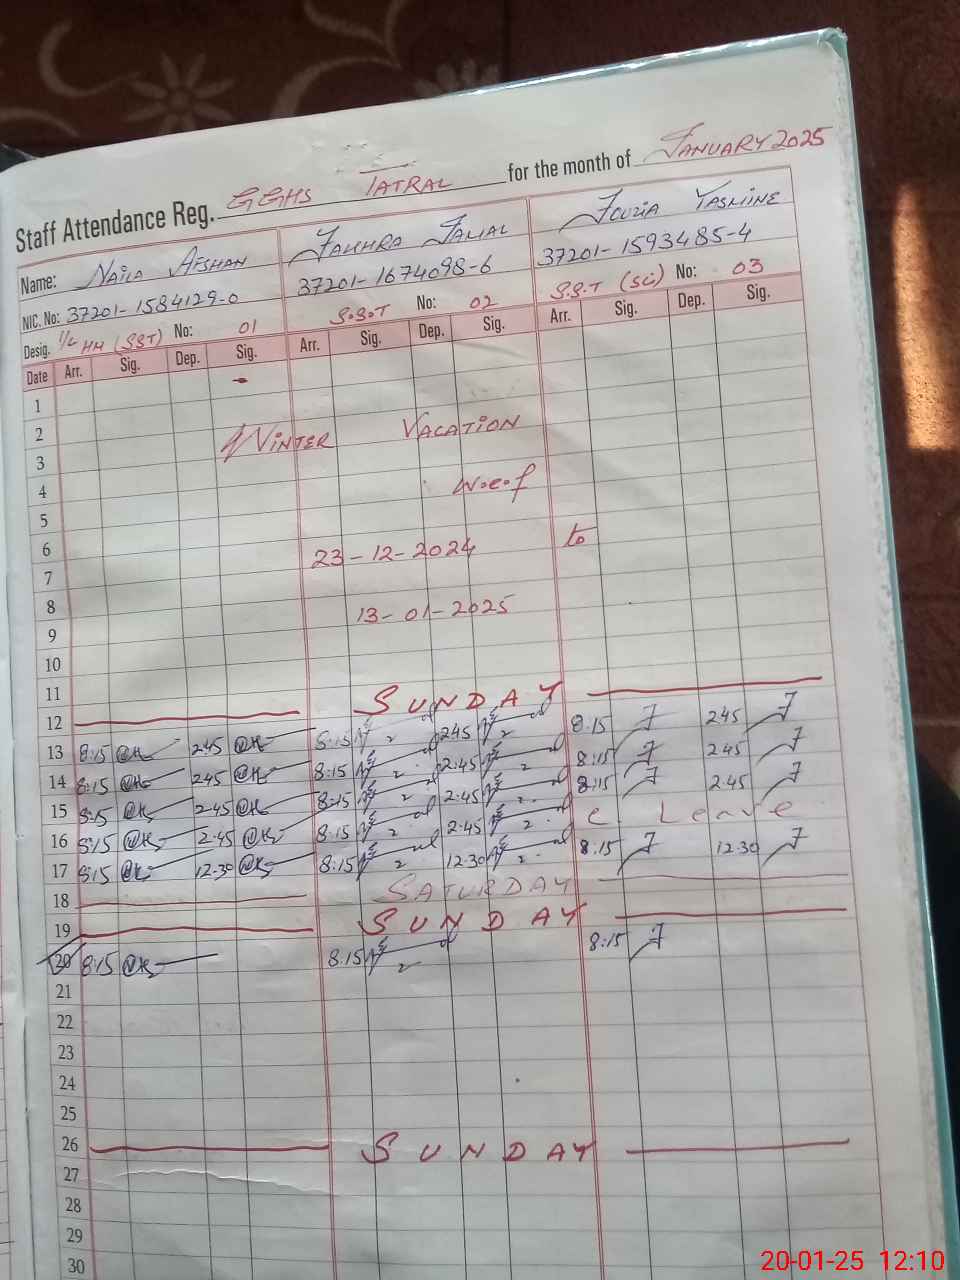 Staff Attendance Reg. GGHS TATRAL for the month of JANUARY 2025
Name: NAILA AFSHAN FAKHRA JAMAL FOUZIA YASMINE
NIC. No: 37201-1584129-0 37201-1674098-6 37201-1593485-4
Desig. I/C HM (SST) No: 01 S.S.T No: 02 S.S.T (SCi) No: 03
Date Arr. Sig. Dep. Sig. Arr. Sig. Dep. Sig. Arr. Sig. Dep. Sig.
1
2 WINTER VACATION
3
4 W.e.f
5
6 23-12-2024 to
7
8 13-01-2025
9
10
11
12 SUNDAY
13 8:15 2:45 8:15 2:45 8:15 2:45
14 8:15 2:45 8:15 2:45 8:15 2:45
15 8:15 2:45 8:15 2:45 8:15 2:45
16 8:15 2:45 8:15 2:45 C Leave
17 8:15 12:30 8:15 12:30 8:15 12:30
18 SATURDAY
19 SUNDAY
20 8:15 8:15 8:15
21
22
23
24
25
26 SUNDAY
27
28
29
30
20-01-25 12:10